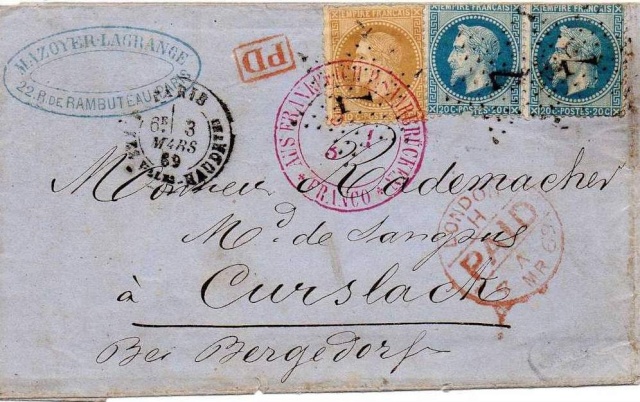 MAZOYER-LAGRANGE
22, R. DE RAMBUTEAU
PARIS
6E 3
MARS
69
PD
EMPIRE FRANÇAIS
EMPIRE FRANÇAIS
20C POSTES 20C
EMPIRE FRANÇAIS
20C POSTES 20C
AUS FRANKREICH
FRANCO
LONDON
PAID
MR 69
Monsieur Rademacher
Md. de Sangsus
à Curslack
Bei Bergedorf